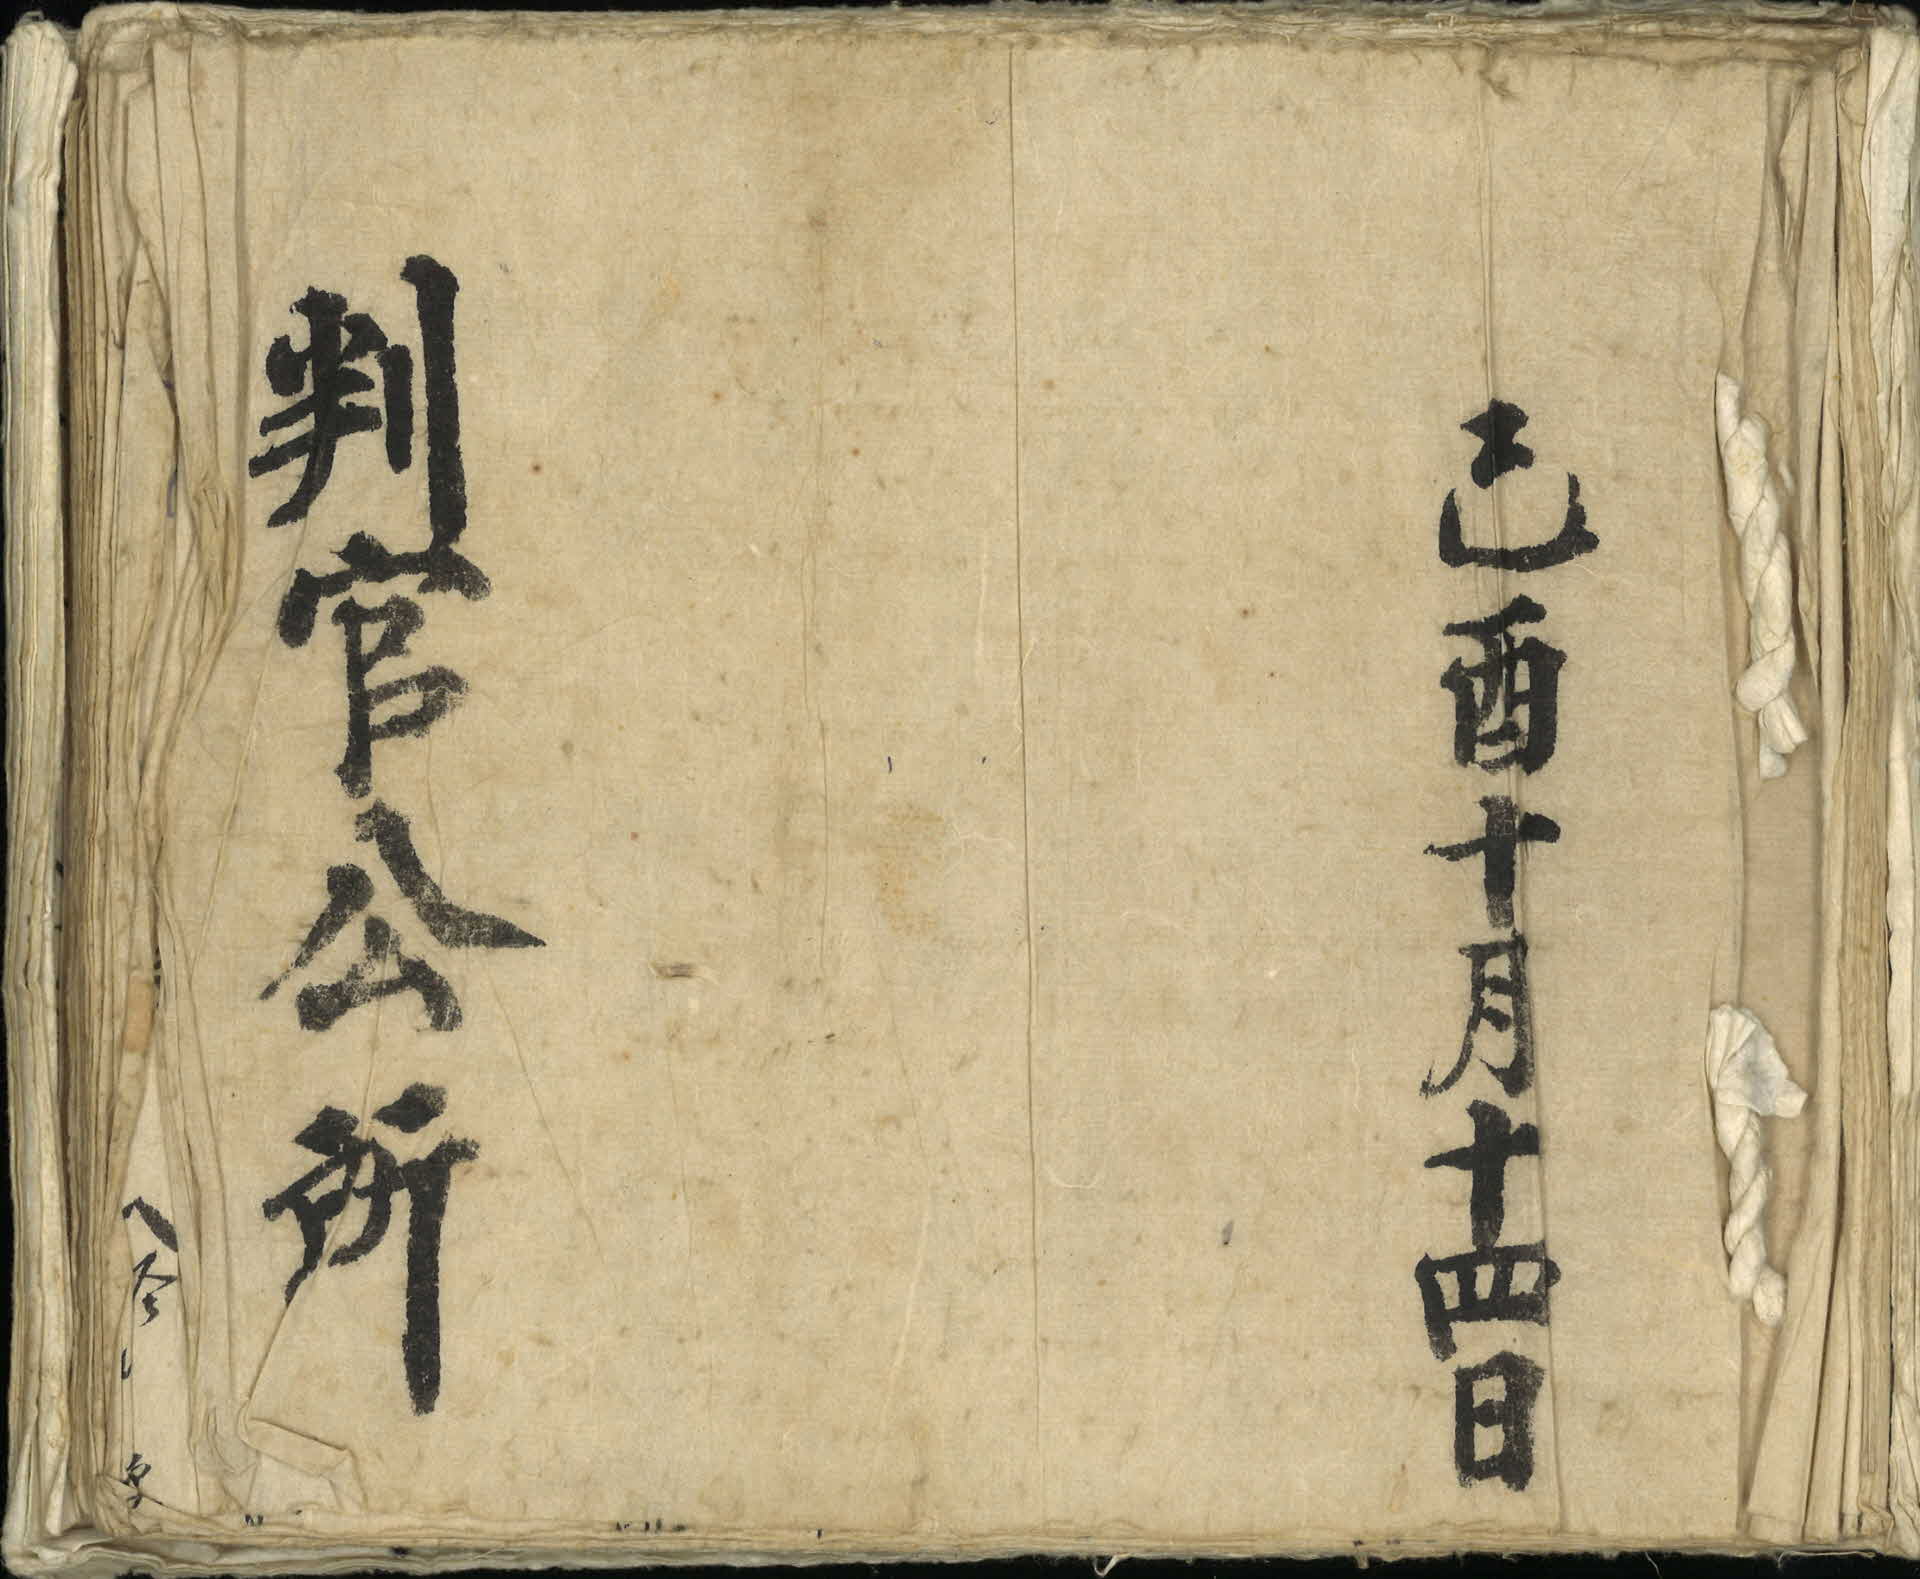 己酉十月十四日
判官公所